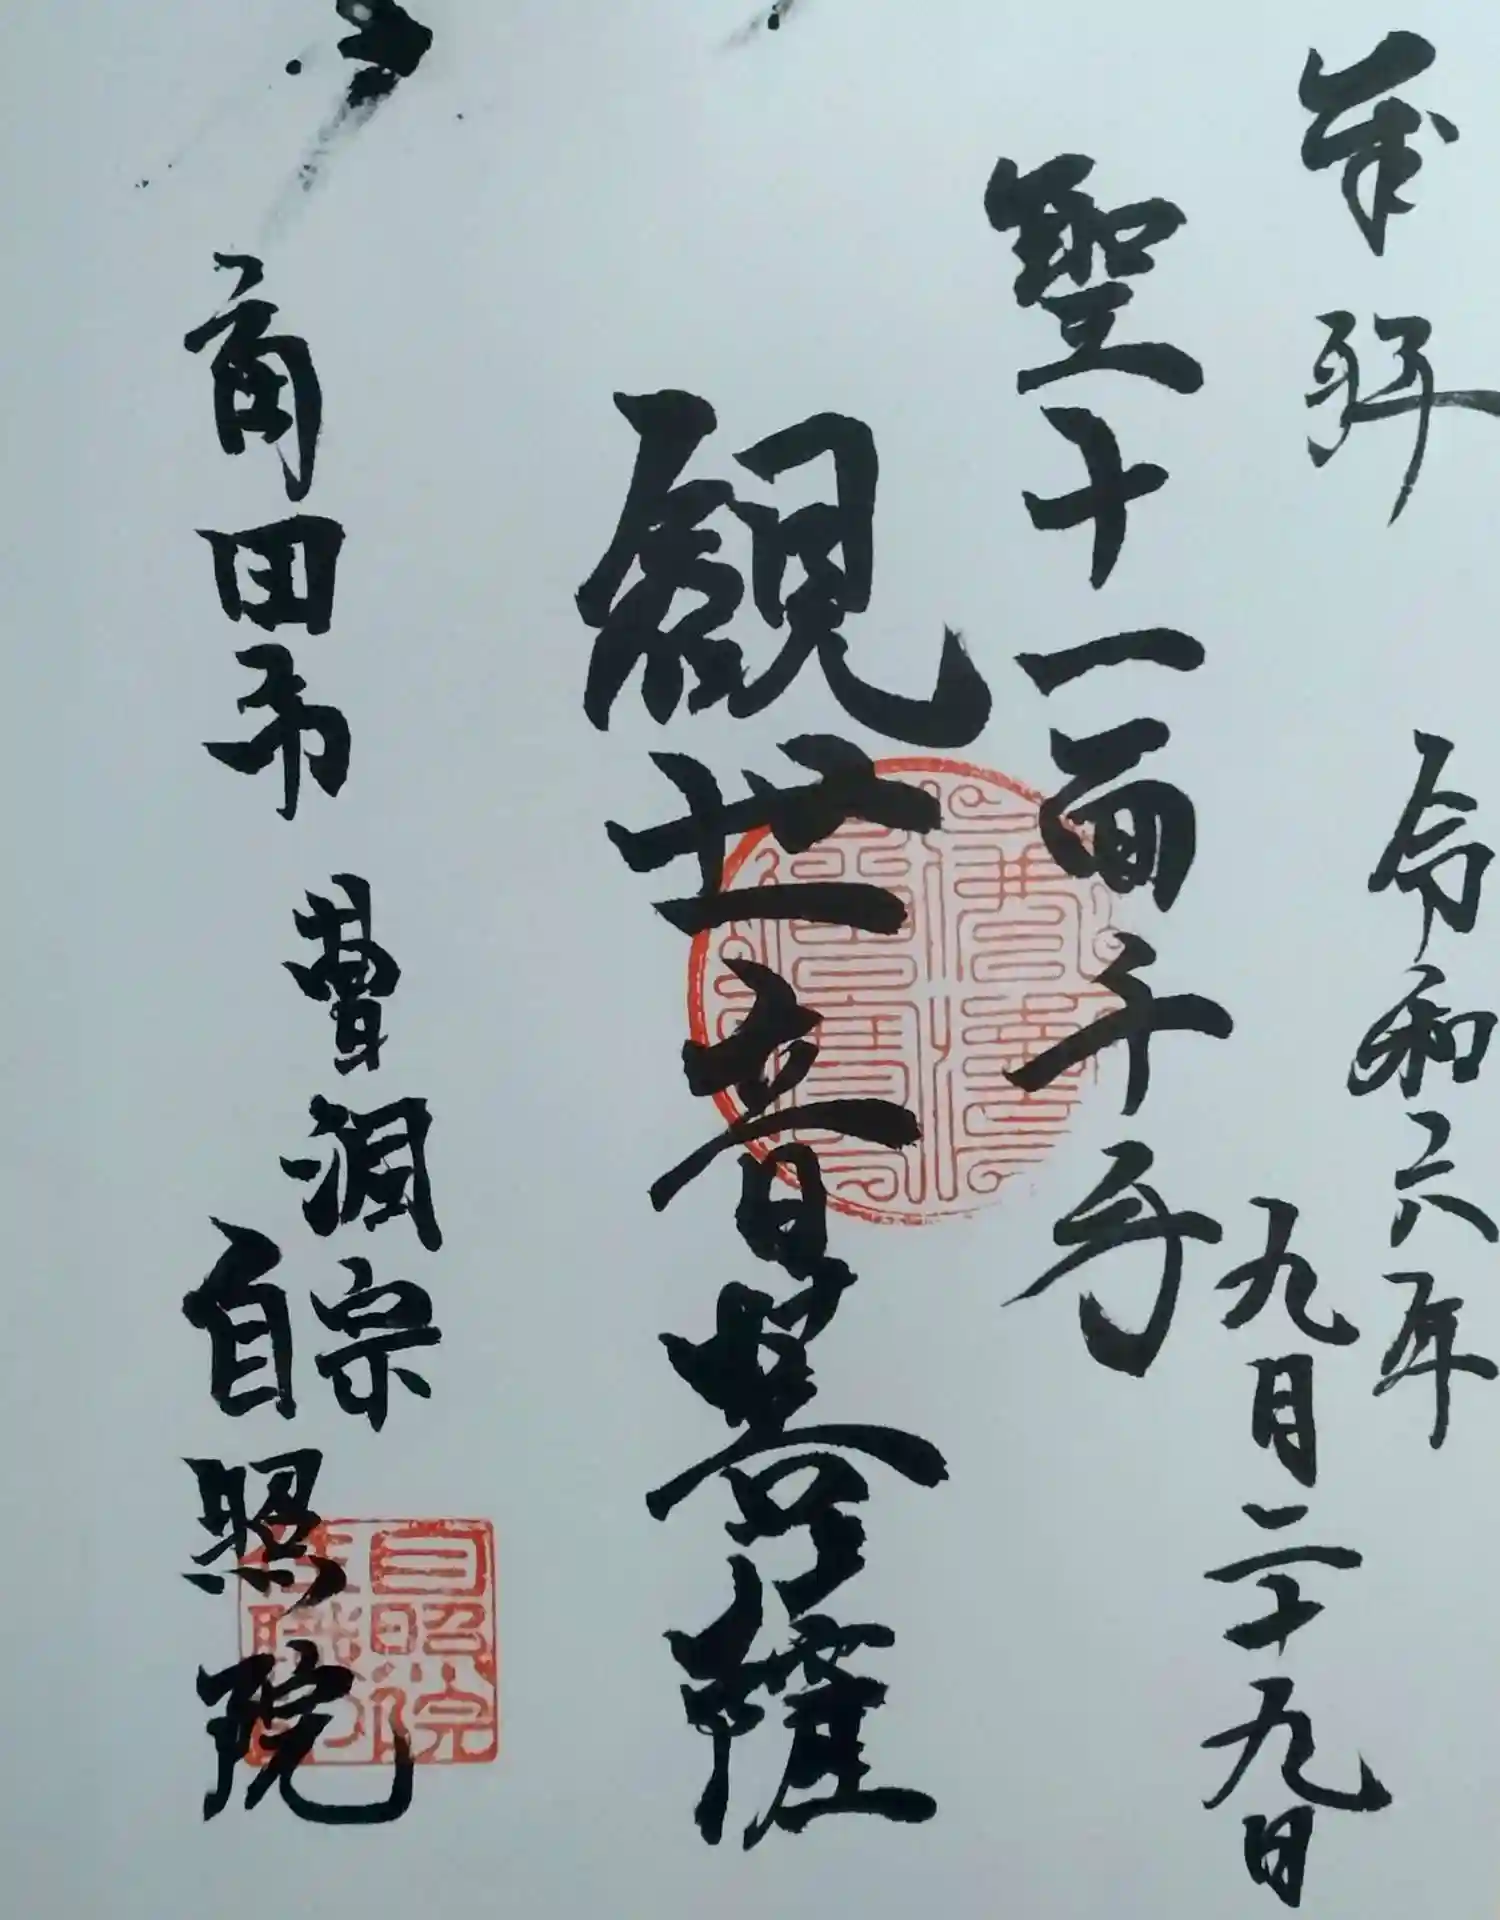 奉拝
令和六年
九月二十九日
聖十一面千手
観世音菩薩
角田市
曹洞宗
自照院
佛法僧寳
自照院